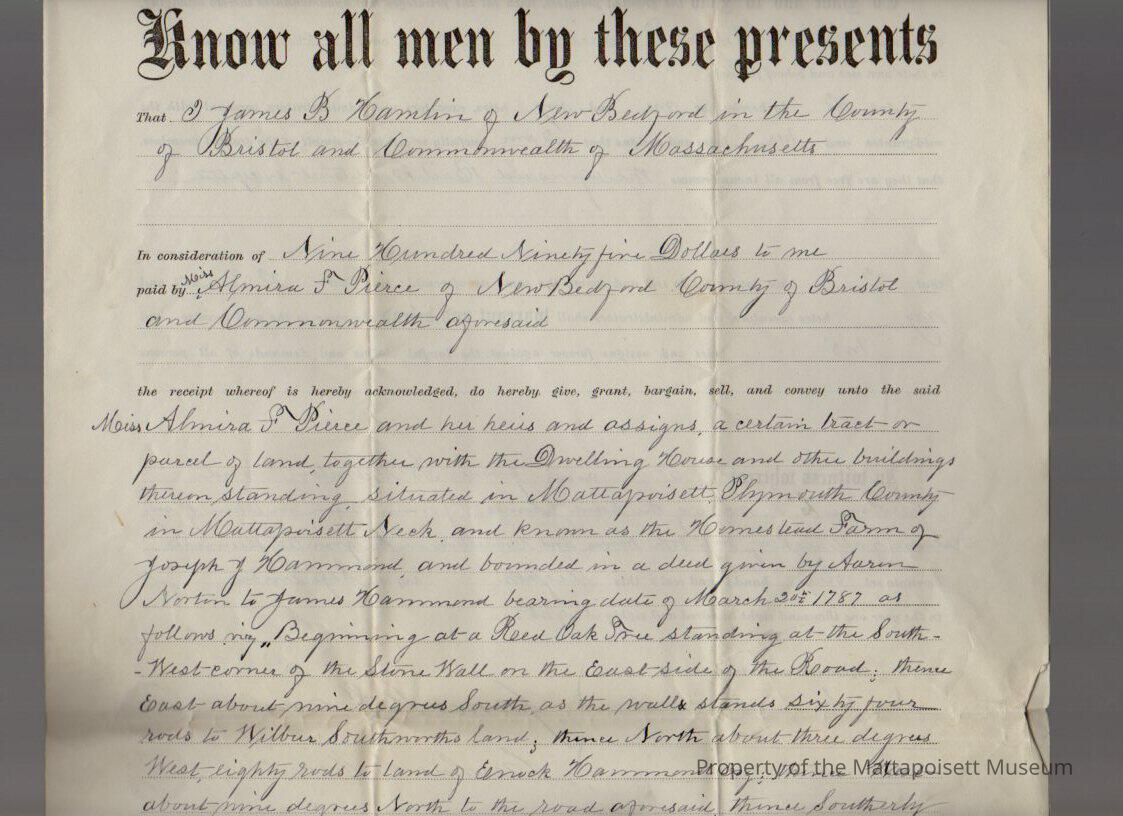 Know all men by these presents
That I James B Hamlin of New Bedford in the County
of Bristol and Commonwealth of Massachusetts
In consideration of Nine Hundred Ninety five Dollars to me
paid by Miss Almira F Pierce of New Bedford County of Bristol
and Commonwealth aforesaid
the receipt whereof is hereby acknowledged, do hereby give, grant, bargain, sell, and convey unto the said
Miss Almira F Pierce and her heirs and assigns, a certain tract or
parcel of land, together with the Dwelling House and other buildings
thereon standing situated in Mattapoisett, Plymouth County
in Mattapoisett Neck, and known as the Homestead Farm of
Joseph J Hammond, and bounded in a deed given by Aaron
Norton to James Hammond bearing date of March 1787 as
follows viz, "Beginning at a Reed Oak Tree standing at the South-
-West corner of the Stone Wall on the East side of the Road; thence
East about nine degrees South, as the walls stands sixty four
rods to Wilbur Southworths land; thence North about three degrees
West, eighty rods to land of Enock
about nine degrees North to the road aforesaid, thence Southerly
Property of the Mattapoisett Museum